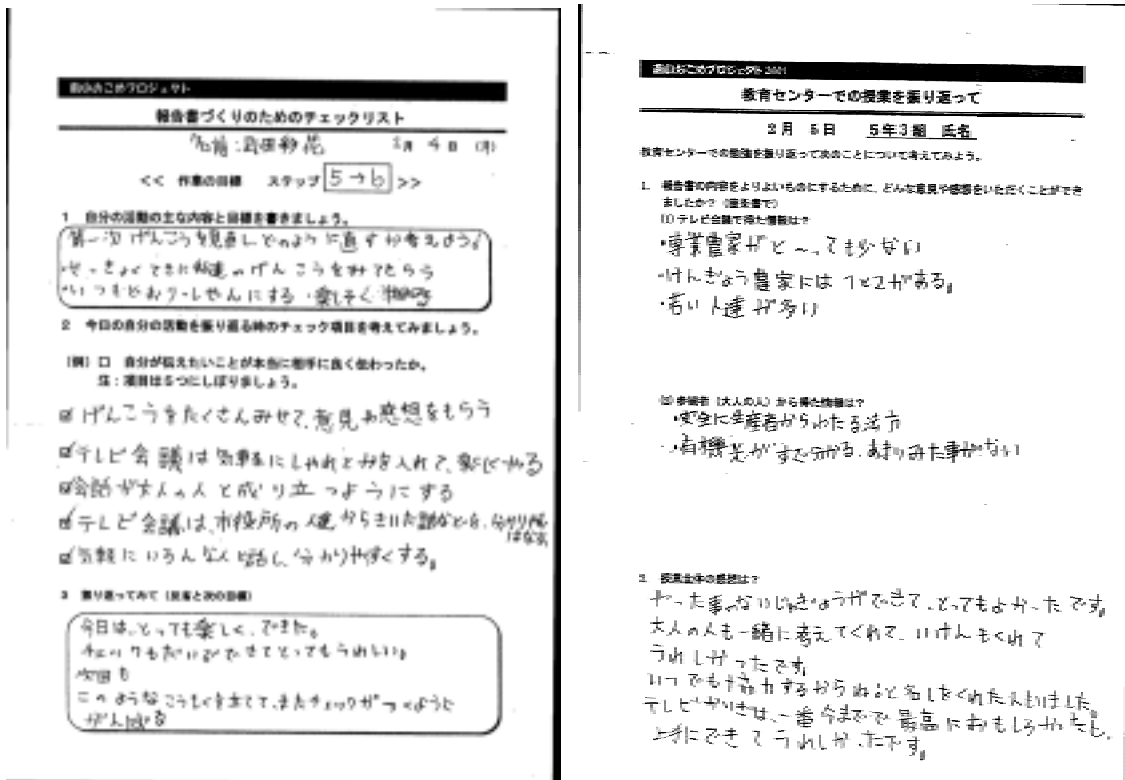 おこめプロジェクト
報告書づくりのためのチェックリスト
名前: 2月 4日 (月)
<< 作業の目標 ステップ 5→6 >>
1 自分の活動の主な内容と目標を書きましょう。
第一次げんこうを見直しどのように直すか考えよう。
せっきょくてきに のげんこうをみてもらう
いつもどおり 楽しく
2 今日の自分の活動を振り返る時のチェック項目を考えてみましょう。
(例) 口 自分が伝えたいことが本当に相手に良く伝わったか。
注:項目は5つにしぼりましょう。
げんこうをたくさんみせて、意見や感想をもらう
テレビ会議は を入れて、楽しくやる
会話が大人の人と成り立つようにする
テレビ会議は、市役所の人達からきいた話などを、分かりやすくはなす
気軽にいろんな人と話し、分かりやすくする。
3 振り返ってみて (反省と次の目標)
今日は、とっても楽しく、できた。
チェックもだいぶできてとってもうれしい。
次回も
このようなこうもくを立てて、またチェックがつくように
がんばる
おこめプロジェクト2001
教育センターでの授業を振り返って
2月 5日 5年3組 氏名
教育センターでの勉強を振り返って次のことについて考えてみよう。
1. 報告書の内容をよりよいものにするために、どんな意見や感想をいただくことができ
ましたか? (箇条書で)
(1) テレビ会議で得た情報は?
・専業農家がと〜っても少ない
・けんぎょう農家には 1と2がある。
・若い人達が多い
(2) 参観者 (大人の人) から得た情報は?
・安全に生産者からわたる法方
・有機 がすぐ分かる、あまりみた事がない
2. 授業全体の感想は?
やった事のないじゅぎょうができて、とってもよかったです。
大人の人も一緒に考えてくれて、いけんもくれて
うれしかったです。
いつでも協力するからねと名しをくれた人もいました。
テレビかいぎは、一番今までで最高におもしろかったし、
上手にできてうれしかったです。